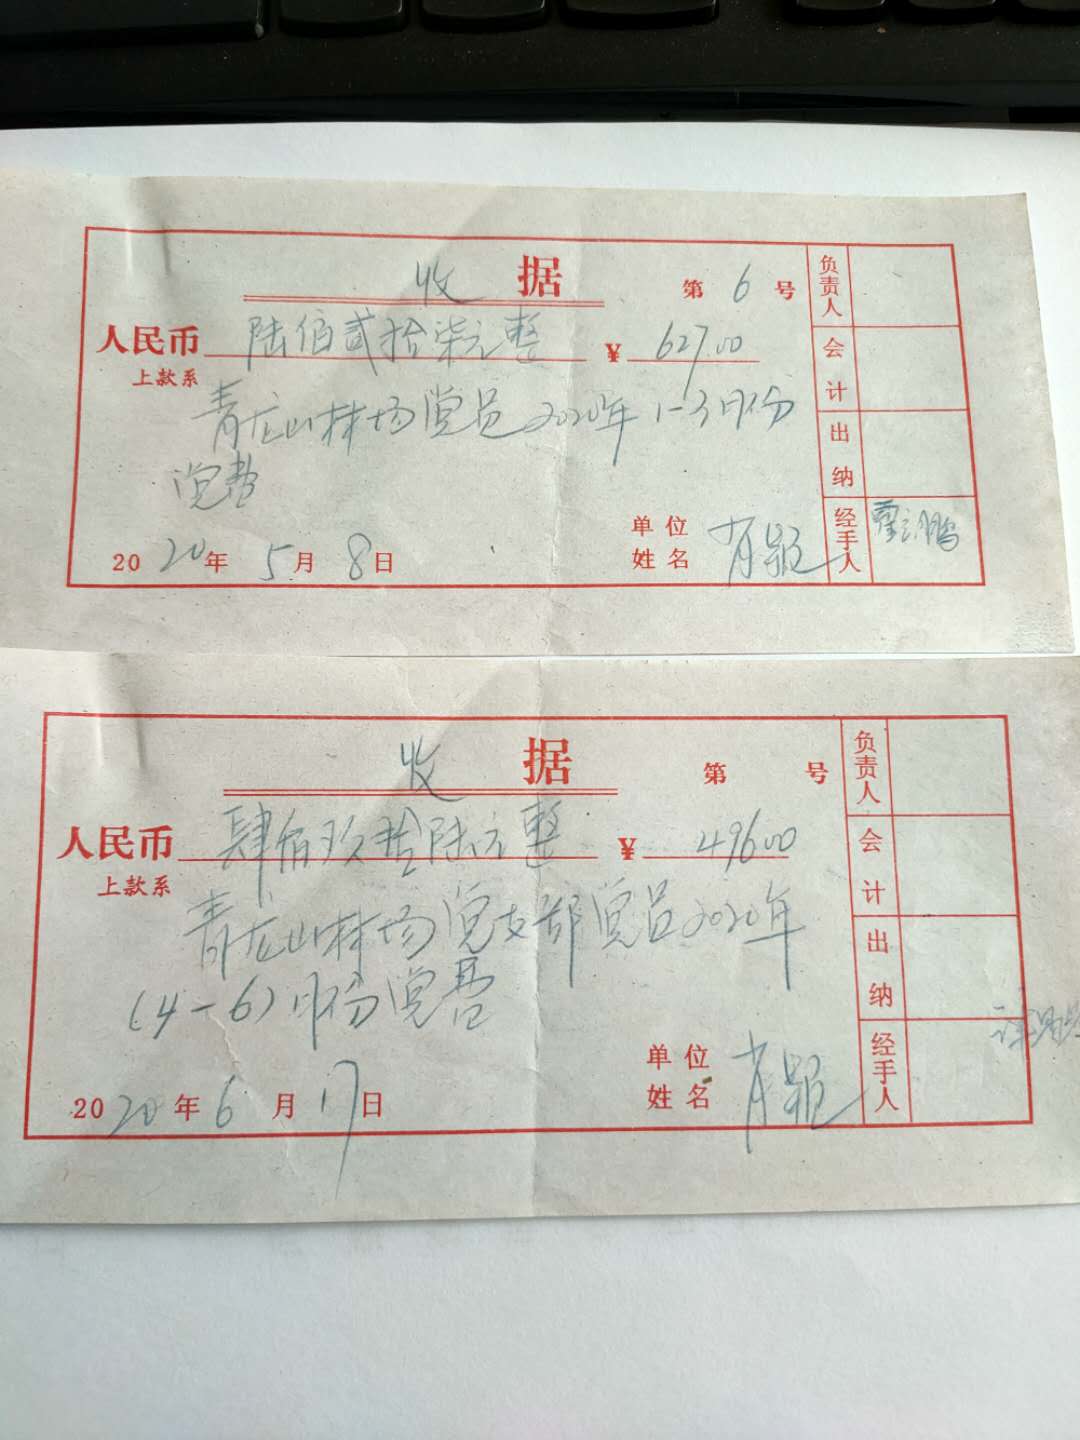 收 据 第 6 号
人民币 陆佰贰拾柒元整 ¥ 627.00
上款系
青龙山林场党员2020年1-3月份
党费
单位
姓名 肖颖
2020年5月8日
负责人
会计
出纳
经手人
收 据 第 号
人民币 肆佰玖拾陆元整 ¥ 496.00
上款系
青龙山林场党支部党员2020年
(4-6)月份党费
单位
姓名 肖颖
2020年6月17日
负责人
会计
出纳
经手人